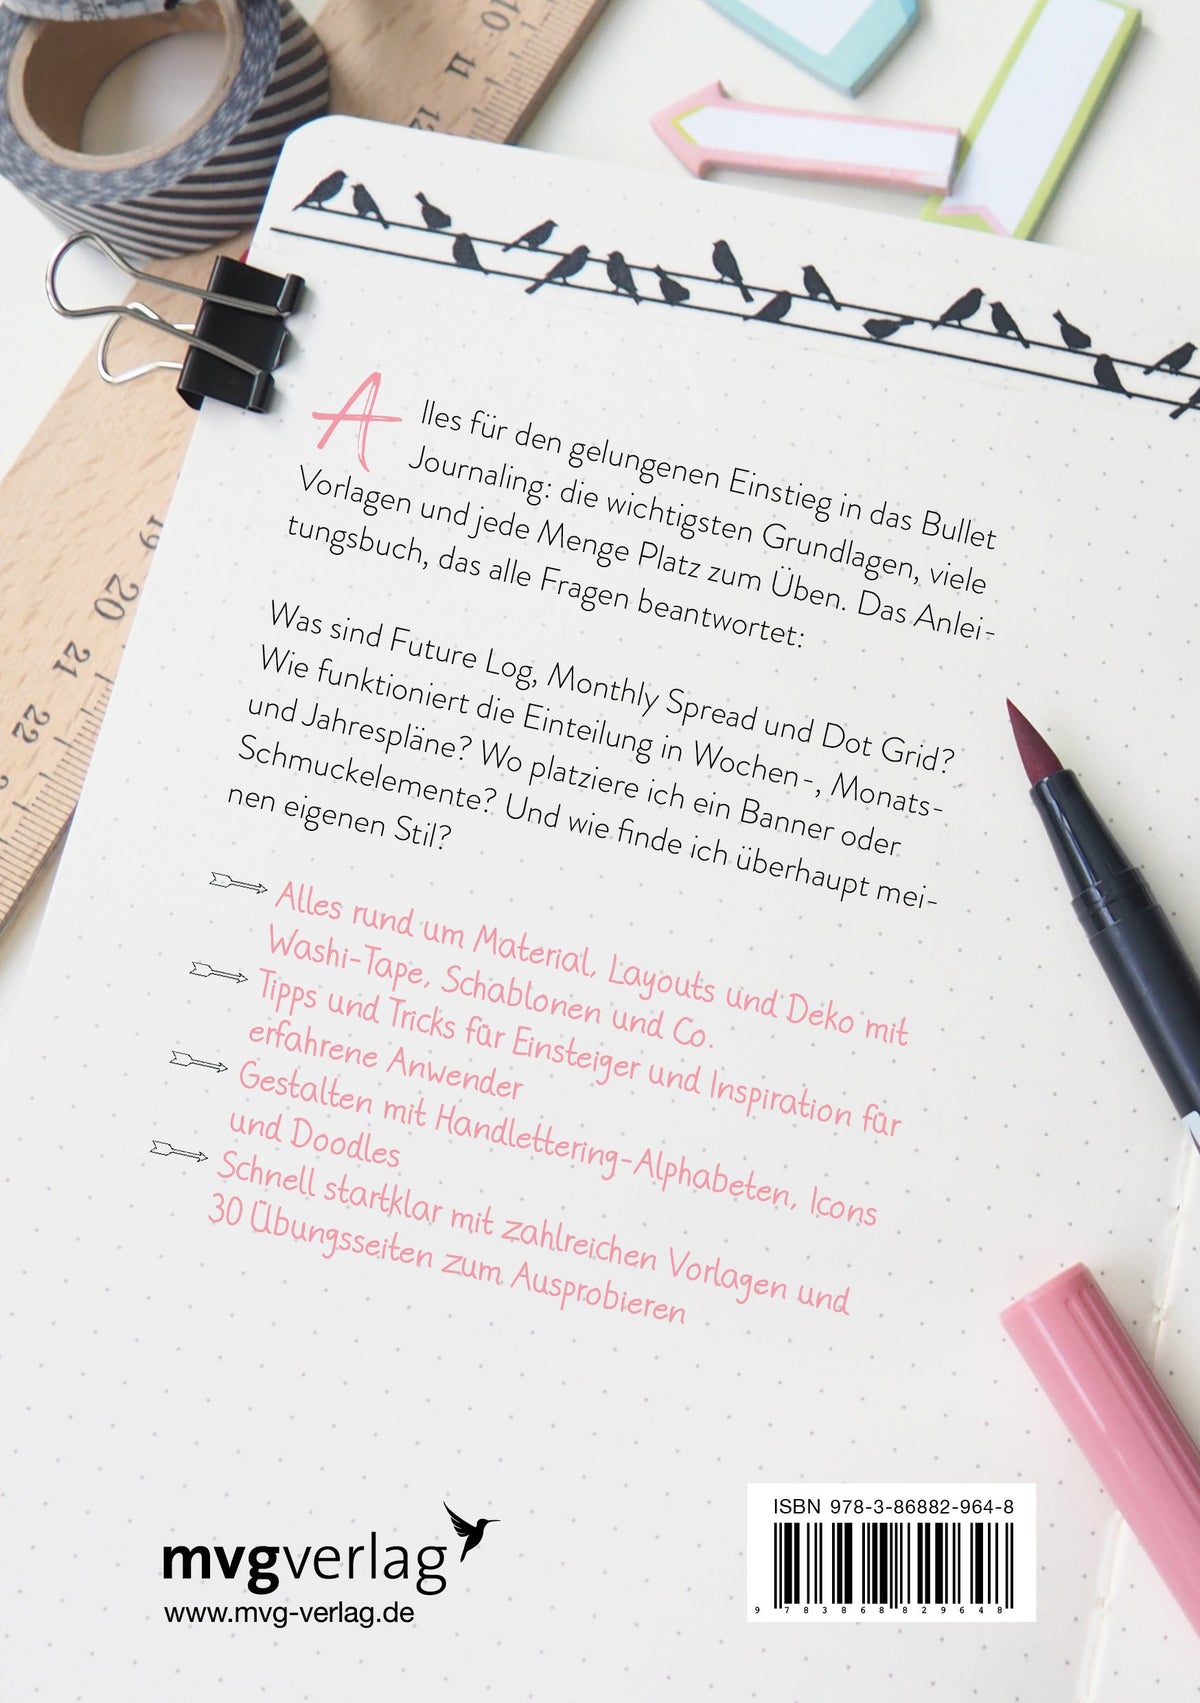 10
11
12
19
20
21
22
Alles für den gelungenen Einstieg in das Bullet
Journaling: die wichtigsten Grundlagen, viele
Vorlagen und jede Menge Platz zum Üben. Das Anlei-
tungsbuch, das alle Fragen beantwortet:
Was sind Future Log, Monthly Spread und Dot Grid?
Wie funktioniert die Einteilung in Wochen-, Monats-
und Jahrespläne? Wo platziere ich ein Banner oder
Schmuckelemente? Und wie finde ich überhaupt mei-
nen eigenen Stil?
Alles rund um Material, Layouts und Deko mit
Washi-Tape, Schablonen und Co.
Tipps und Tricks für Einsteiger und Inspiration für
erfahrene Anwender
Gestalten mit Handlettering-Alphabeten, Icons
und Doodles
Schnell startklar mit zahlreichen Vorlagen und
30 Übungsseiten zum Ausprobieren
mvgverlag
www.mvg-verlag.de
ISBN 978-3-86882-964-8
9 783868 829648